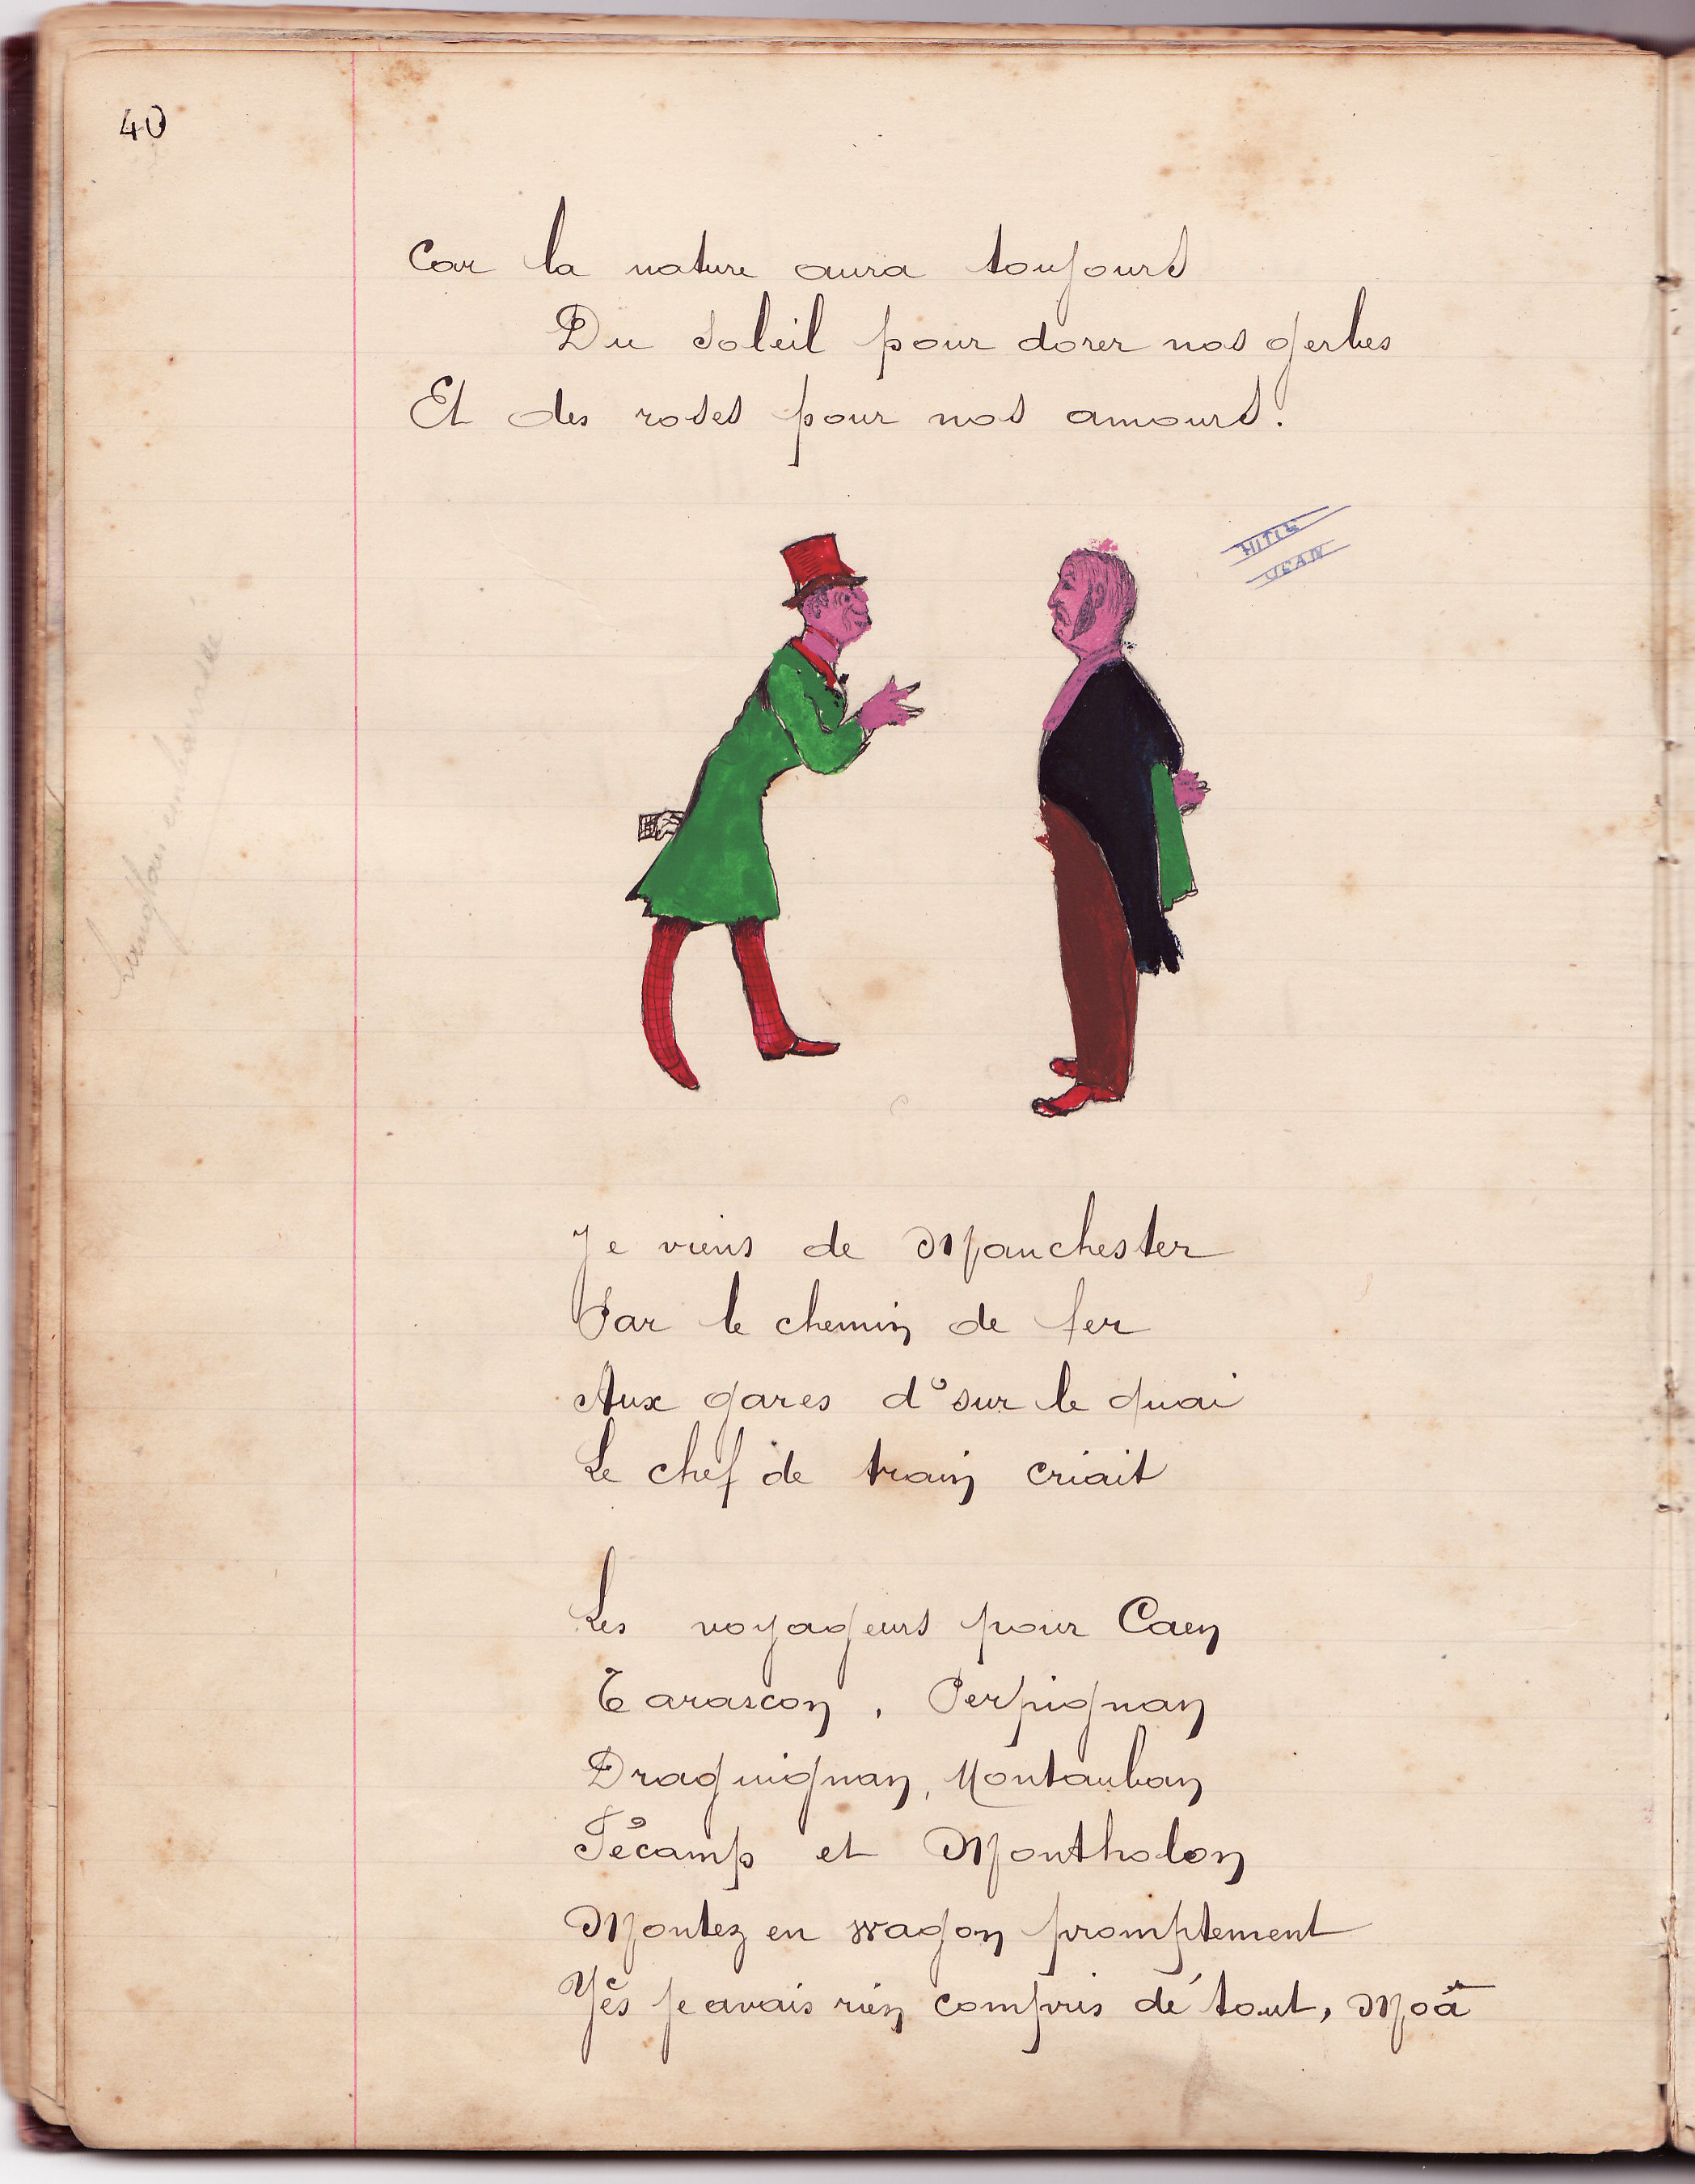 40
Car la nature aura toujours
Du soleil pour dorer nos gerbes
Et des roses pour nos amours.
JEAN
L'anglais embarrassé
Je viens de Manchester
Par le chemin de fer
Aux gares d' sur le quai
Le chef de train criait
Les voyageurs pour Caen
Tarascon, Perpignan
Draguignan, Montauban
Fécamp et Montholon
Montez en wagon promptement
Yès je avais rien compris dé tout, Moâ